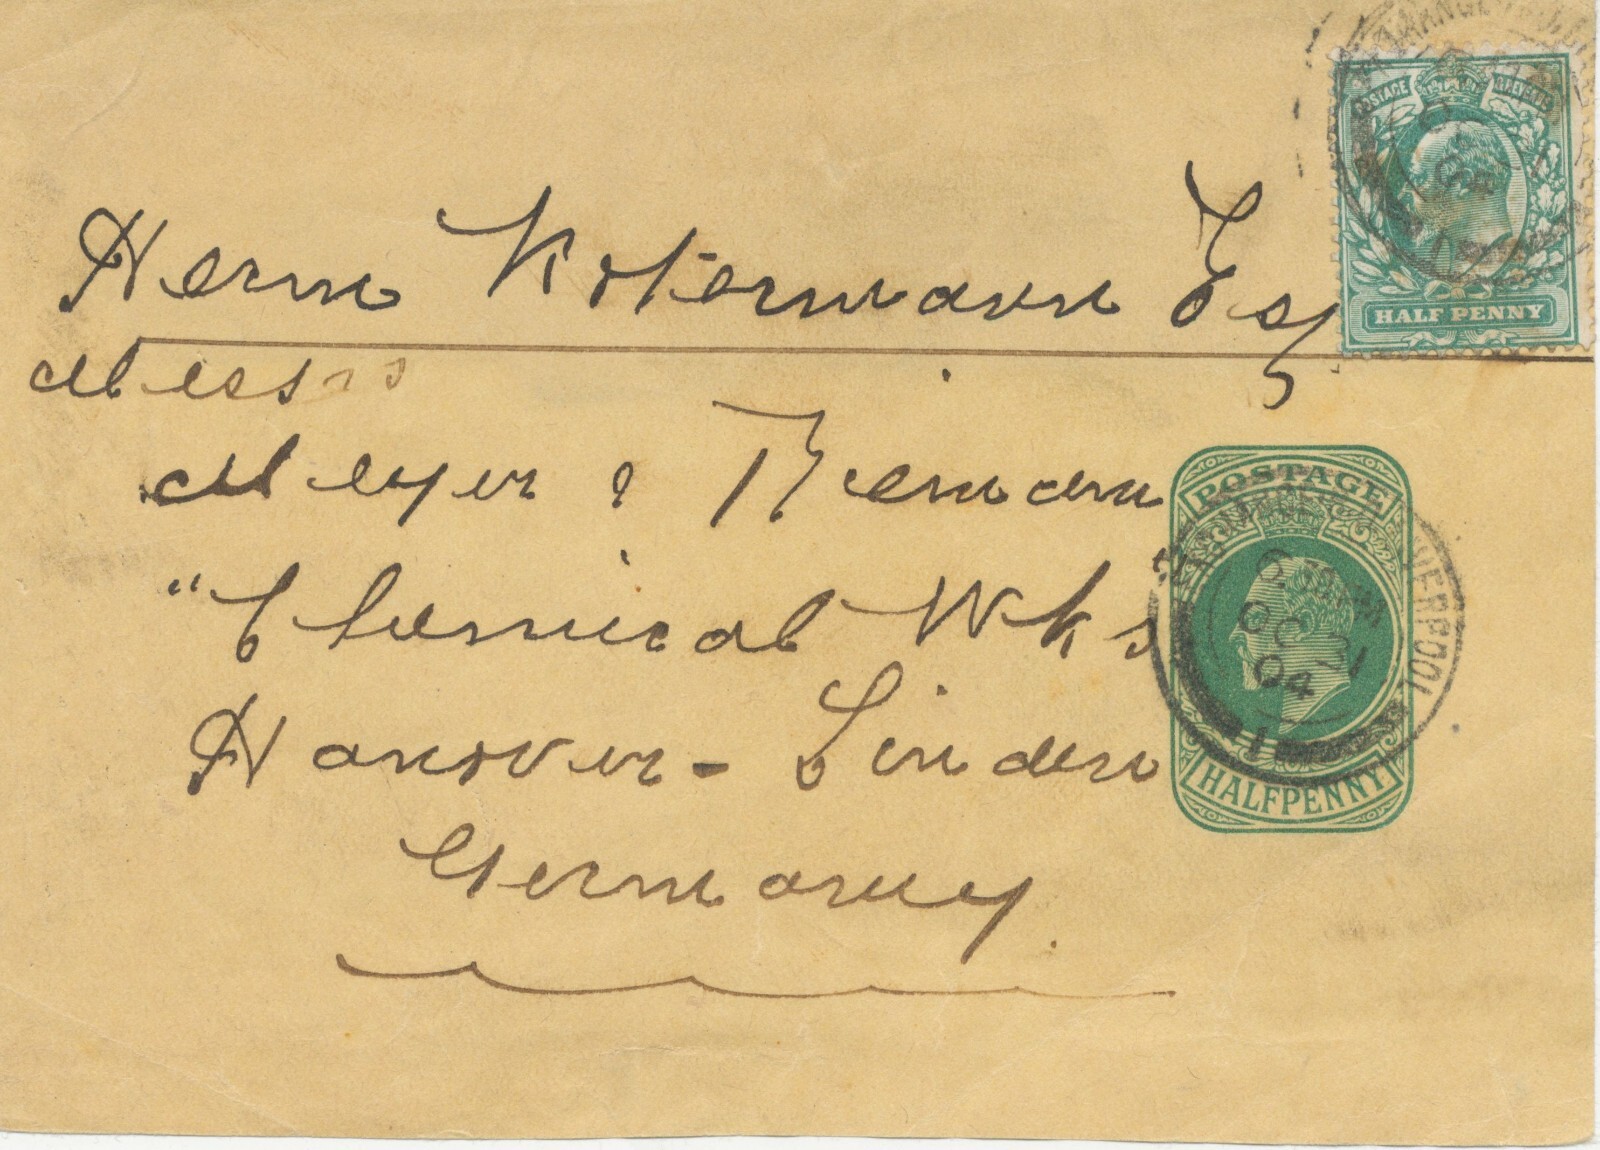 POSTAGE
HALF PENNY
Herrn Kotermann Esq
Messrs
Meyer & Riemann
"Chemical Wks
Hanover - Linden
Germany
POSTAGE
HALFPENNY
LIVERPOOL
OC 21
04
1